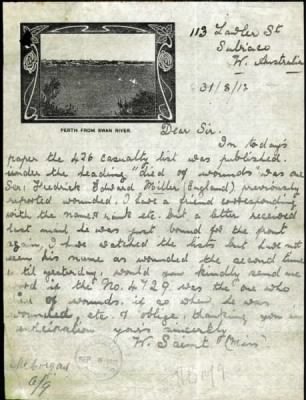 113 Lawler St
Subiaco
W. Australia
31/8/18
PERTH FROM SWAN RIVER.
Dear Sir.
In today's
paper the 426 casualty list was published.
under the heading "died of wounds" was one
Ser: Fredrick Edward Miller (England) previously
reported wounded. I have a friend corresponding
with the name, rank etc. but a letter received
last mail he was just bound for the front
again, I have watched the lists but have not
seen his name as wounded the second time
til yesterday, would you kindly send me
word is the No. 4729 was the one who
died of wounds. if so when he was
wounded, etc. & oblige, thanking you in
anticipation yours sincerely
W. Saint (Miss)